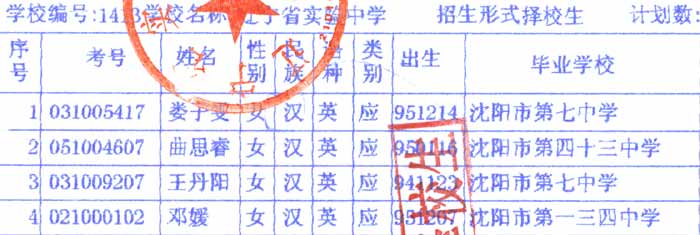 学校编号:1413学校名称:辽宁省实验中学 招生形式择校生 计划数:
序号 考号 姓名 性别 民族 语种 类别 出生 毕业学校
1 031005417 娄子雯 女 汉 英 应 951214 沈阳市第七中学
2 051004607 曲思睿 女 汉 英 应 950116 沈阳市第四十三中学
3 031009207 王丹阳 女 汉 英 应 941123 沈阳市第七中学
4 021000102 邓媛 女 汉 英 应 951207 沈阳市第一三四中学
校生